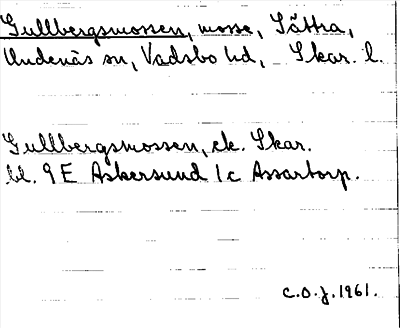 Gullbergsmossen, mosse, Sättra,
Undenäs sn, Vadsbo hd, Skar. l.
Gullbergsmossen, ek. Skar.
bl. 9E Askersund 1c Assartorp.
C.O.J. 1961.